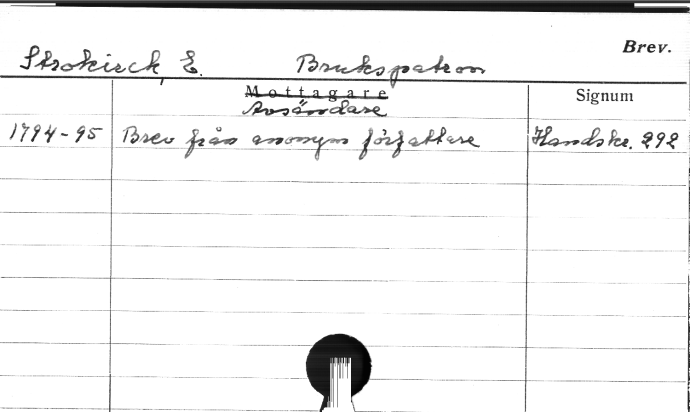 Brev.
Strokirck, E. Brukspatron
Mottagare Signum
Avsändare
1794-95 Brev från anonym författare Handskr. 292